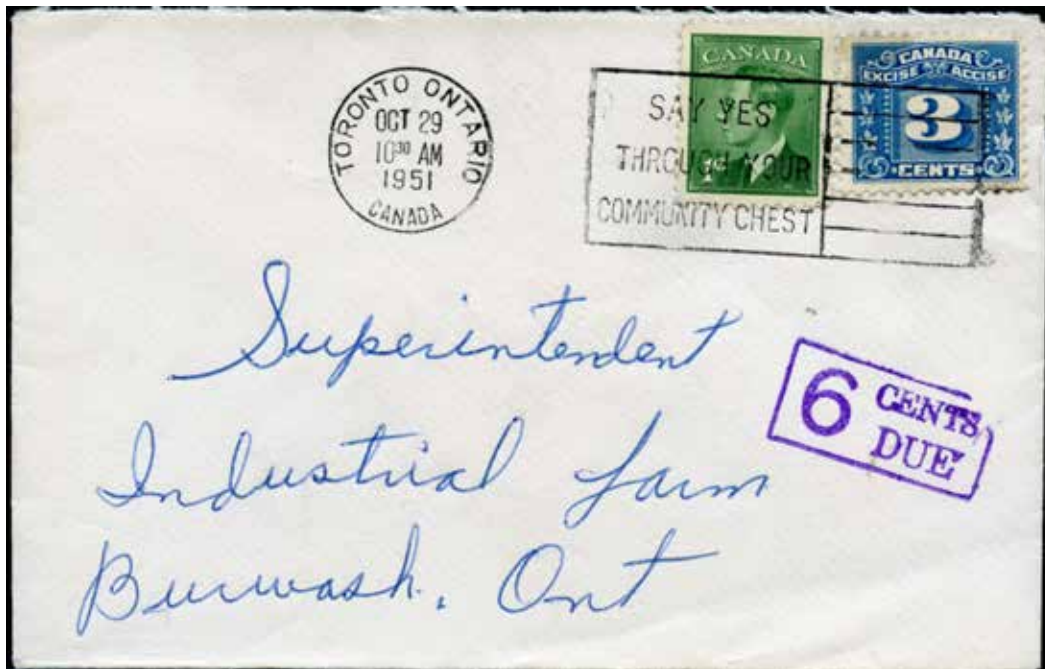 TORONTO ONTARIO
OCT 29
10³⁰ AM
1951
CANADA
SAY YES
THROUGH YOUR
COMMUNITY CHEST
CANADA
1¢
CANADA
EXCISE ACCISE
3
CENTS
Superintendent
6 CENTS
DUE
Industrial farm
Burwash, Ont